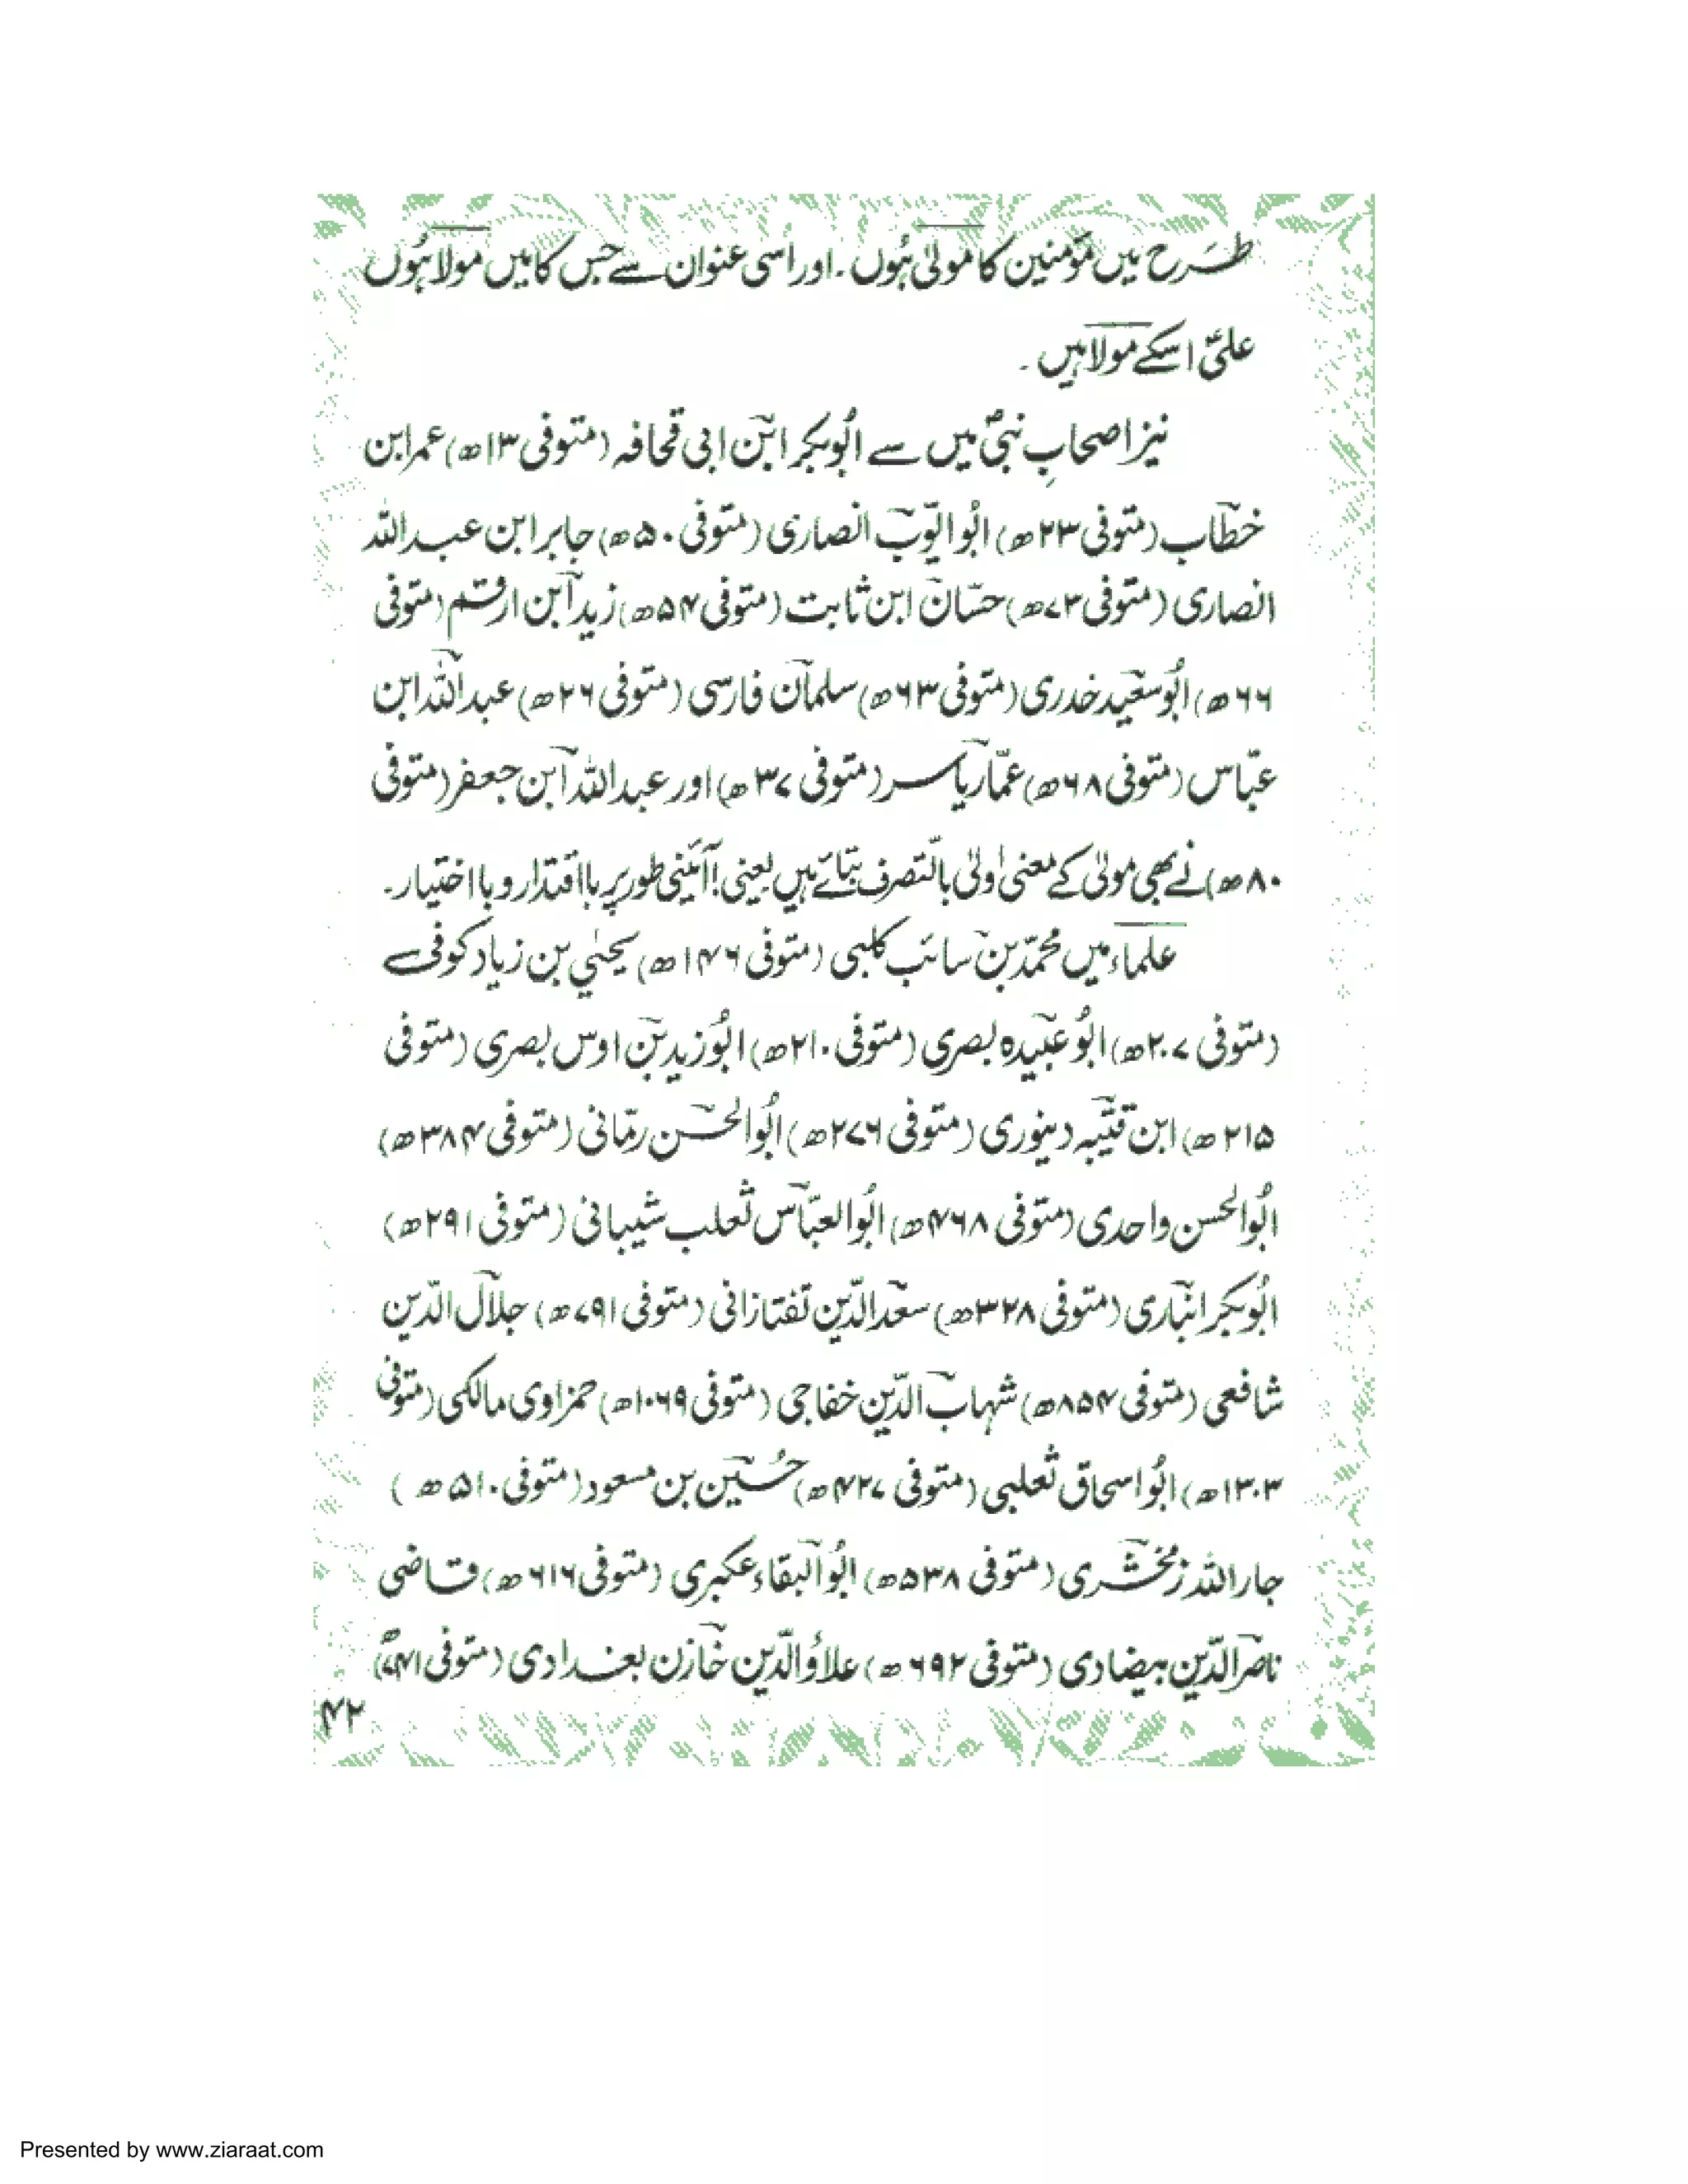 طرح میں مؤمنین کا مولیٰ ہُوں ۔ اور اسی عنوان سے جس کا میں مولا ہُوں
علیؑ اسکے مولا ہیں ۔
نیز اصحابِ نبیؐ میں سے ابُوبکر ابن ابی قحافہ (متوفی ۱۳ھ) عمر ابن
خطاب (متوفی ۲۳ھ) ابُو ایوّب انصاری (متوفی ۵۰ھ) جابر ابن عبداللہ
انصاری (متوفی ۷۳ھ) حسّان ابن ثابت (متوفی ۵۴ھ) زید ابن ارقم (متوفی
۶۶ھ) ابُو سعید خدری (متوفی ۶۳ھ) سلمان فارسی (متوفی ۲۶ھ) عبداللہ ابن
عبّاس (متوفی ۶۸ھ) عمّار یاسر (متوفی ۳۷ھ) اور عبداللہ ابن جعفر (متوفی
۸۰ھ) نے بھی مولیٰ کے معنی اولیٰ بالتصرف بتائے ہیں یعنی! آئینی طور پر با اقتدار و با اختیار۔
علماء میں محمّد بن سائب کلبی (متوفی ۱۴۶ھ) یحیٰی بن زیاد کوفی
(متوفی ۲۰۷ھ) ابُو عبیدہ بصری (متوفی ۲۱۰ھ) ابُو زید بن اوس بصری (متوفی
۲۱۵ھ) ابن قتیبہ دینوری (متوفی ۲۷۶ھ) ابُو الحسن رمّانی (متوفی ۳۸۴ھ)
ابُو الحسن واحدی (متوفی ۴۶۸ھ) ابُو العبّاس ثعلب شیبانی (متوفی ۲۹۱ھ)
ابُوبکر انباری (متوفی ۳۲۸ھ) سعد الدّین تفتازانی (متوفی ۷۹۱ھ) جلال الدّین
شافعی (متوفی ۸۵۴ھ) شہاب الدّین خفاجی (متوفی ۱۰۶۹ھ) حمزاوی مالکی (متوفی
۱۳۰۳ھ) ابُو اسحاق ثعلبی (متوفی ۴۲۷ھ) حُسین بن مسعود (متوفی ۵۱۰ھ )
جار اللہ زمخشری (متوفی ۵۳۸ھ) ابُو البقاء عکبری (متوفی ۶۱۶ھ) قاضی
ناصر الدّین بیضادی (متوفی ۶۹۲ھ) علاؤ الدّین خازن بغدادی (متوفی ۷۴۱ھ)
۴۲
Presented by www.ziaraat.com